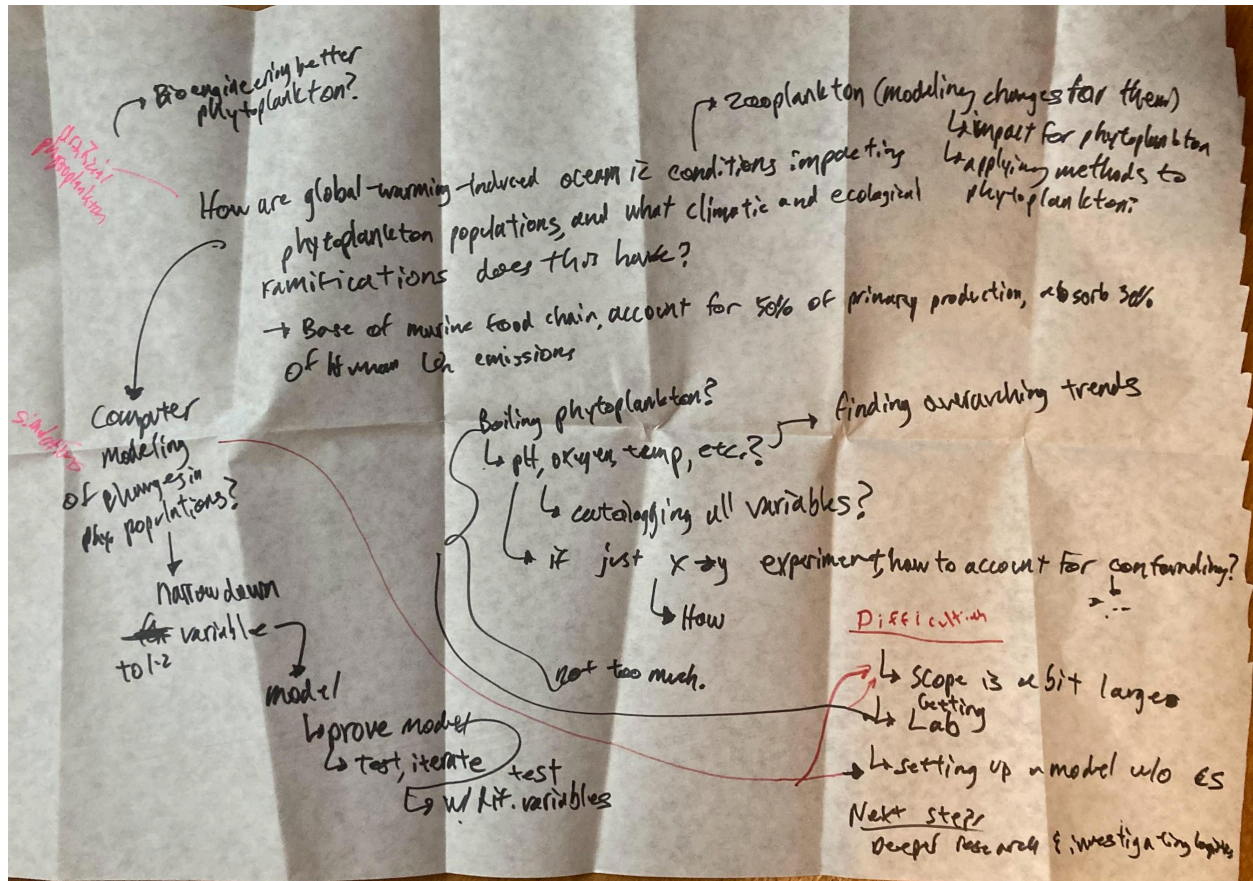 Bioengineering better
phytoplankton?
artificial
phytoplankton
Zooplankton (modeling changes for them)
↳ impact for phytoplankton
↳ applying methods to
phytoplankton?
How are global-warming-induced oceanic conditions impacting
phytoplankton populations, and what climatic and ecological
ramifications does this have?
→ Base of marine food chain, account for 50% of primary production, absorb 30%
of Human emissions
simulations
Computer
modeling
of changes in
phyto populations?
narrow down
variable
to 1-2
model
↳ prove model
↳ test, iterate
test
↳ w/ dif. variables
Boiling phytoplankton?
↳ pH, oxygen, temp, etc.?
finding overarching trends
↳ catalogging all variables?
↳ if just x→y experiment, how to account for confounding?
↳ How
not too much.
Difficulties
↳ scope is a bit large
↳ Getting
Lab
↳ setting up a model w/o CS
Next steps
Deeper research & investigating logistics